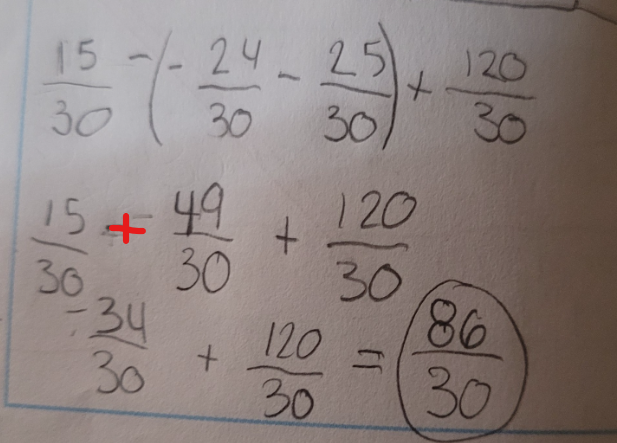 15/30 - (- 24/30 - 25/30) + 120/30
15/30 + 49/30 + 120/30
- 34/30 + 120/30 = 86/30